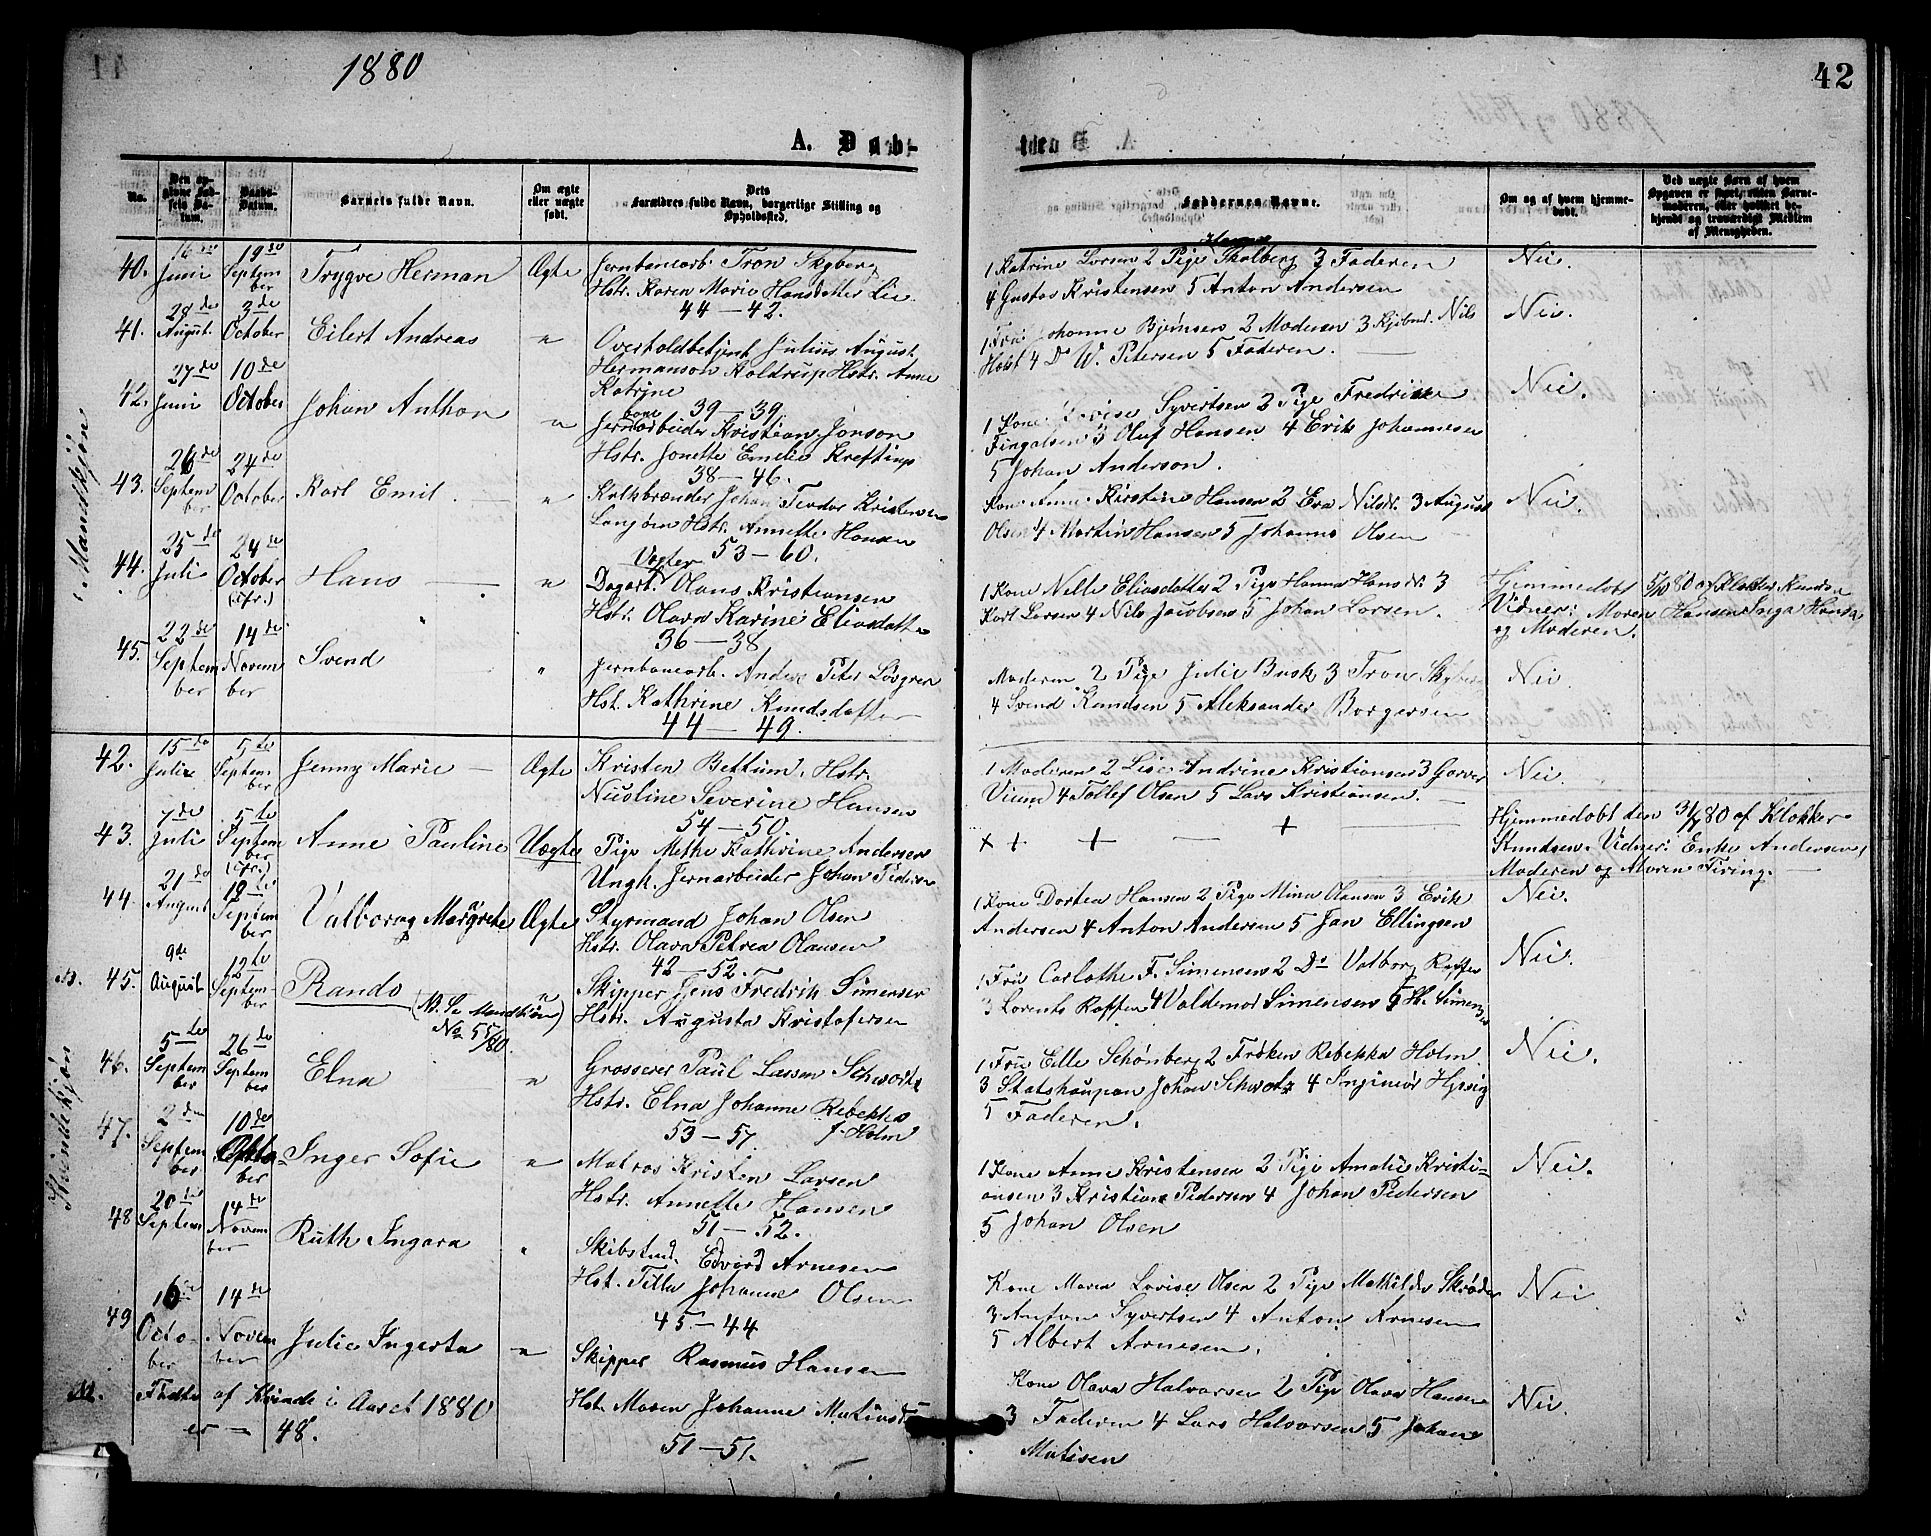 1880
42
A. Døb-
No.
Den op-
givne Fød-
sels Da-
tum.
Daabs-
Datum.
Barnets fulde Navn.
Om ægte
eller uægte
født.
Dets
Forældres fulde Navn, borgerlige Stilling og
Opholdssted.
Faddernes Navne.
Om og af hvem hjemme-
døbt.
Ved uægte Børn af hvem
Opgaven er skeet, enten Barne-
moderen, eller hvilket be-
kjendt og troværdigt Medlem
af Menigheden.
Mandkjøn
40. Juni 19de September Trygve Herman Ægte Jernbanearb. Tron Skyberg
Hstr. Karen Marie Hansdatter Lie
44 — 42.
1 Katrine Larsen 2 Pige Hanna Thalberg 3 Faderen
4 Gustav Kristensen 5 Anton Andersen
Nei.
41. 28de August. 3de October Eilert Andreas " Overtoldbetjent Julius August
Hermanson Holdrup Hstr. Anne
Katrine
39 — 39.
1 Fru Johanne Bjørnsen 2 Moderen 3 Kjøbmd. Nils
Holst 4 Do W. Petersen 5 Faderen.
Nei.
42. 27de Juni 10de October Johan Anthon " Jernbanearbeider Kristian Jonson
Hstr. Jonette Emelie Kreftings
38 — 46.
1 Kone Lovise Syvertsen 2 Pige Fredrikke
Fingalsen 3 Oluf Hansen 4 Erik Johannesen
5 Johan Anderson.
Nei.
43. 26de September 24de October Karl Emil. " Kalkbrænder Johan Teodor Kristensen
Hstr. Annette Hansen
53 — 60.
Kone Anne Kirstine Hansen 2 Eva Nilsdr. 3 August
Olsen 4 Martin Hansen 5 Johannes Olsen
Nei.
44. 25de Juli 24de October Hans " Vogter
Dagarb. Olaus Kristiansen
Hstr. Olava Karine Eliasdatter
36 — 38
1 Kone Nelle Eliasdatter 2 Pige Hanna Hansdr. 3
Karl Larsen 4 Nils Jacobsen 5 Johan Larsen.
Hjemmedøbt 5/10 80 af Klokker Knudsen
Vidner: Maren Hansen Inga Hansen
og Moderen.
45. 22de September 14de November Svend " Jernbanearb. Anders Peter Løvgren
Hst. Kathrine Knudsdatter
44 — 49.
Moderen 2 Pige Julie Busk 3 Tron Skyberg
4 Svend Knudsen 5 Aleksander Borgersen
Nei
Kvindekjøn
42. 15de Juli 5te September Jenny Marie Ægte Kristen Bettum. Hstr.
Nicoline Severine Hansen
54 — 50.
1 Moderen 2 Lise Andrine Kristiansen 3 Garver
Vium 4 Tollef Olsen 5 Lars Kristiansen.
Nei.
43. 7de Juli 5te September Anne Pauline Uægte Pige Methe Kathrine Andersen
Ungk. Jernarbeider Johan Pedersen
× + + — +
Hjemmedøbt den 31/7 80 af Klokker
Knudsen. Vidner: Enke Andersen,
Moderen og Maren Firing.
44 21de August September Valborg Margrete Ægte Styrmand Johan Olsen
Hstr. Olava Petrea Olausen
42 — 52.
1 Kone Dortea Hansen 2 Pige Mina Olausen 3 Erik
Andersen 4 Anton Andersen 5 Jan Ellingsen
Nei.
45. 9de August 12te September Rando (NB. Se Mandkjøn
No 55/80.)
Skipper Jens Fredrik Simensen
Hstr. Augusta Kristofersen
1 Fru Carlothe F. Simensen 2 Do Valborg Raffen
3 Lorents Raffen 4 Valdemar Simensen 5 H. Simensen
Nei.
46. 5te September 26de September Elna " Grosserer Paul Lassen Schwartz
Hstr. Elna Johanne Rebekka
f. Holm
53 — 57
1 Fru Elle Schønberg 2 Frøken Rebekka Holm
3 Johan Schwartz 4 Ingeniør
5 Faderen.
Nei.
47. 2den September 10de October Inger Sofie " Matros Kristen Larsen
Hstr. Annette Hansen
51 — 52.
1 Kone Anne Kristensen 2 Pige Amalie Kristi-
ansen 3 Kristian Pedersen 4 Johan Pedersen
5 Johan Olsen
Nei.
48 20de September 14de November Ruth Ingara " Edvard Arnesen
Hst. Tilla Johanne Olsen
45 — 44
Kone Maren Lovise Olsen 2 Pige Mathilde Skrøder
3 Anton Syvertsen 4 Anton Arnesen
5 Albert Arnesen.
Nei
49 16de October 14de November Julie Ingerta " Skipper Rasmus Hansen
Hst. Maren Johanne
51 — 51.
Kone Olava Halvorsen 2 Pige Olava Hansen
3 Faderen 4 Lars Halvorsen 5 Johan
Matisen
Nei.
Fødte af Kvindek. i Aaret 1880
er — 48.